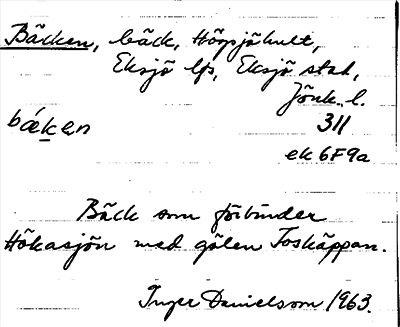 Bäcken, bäck, Högsjöhult,
Eksjö lfs, Eksjö stad,
Jönk. l.
bǽken 311
ek 6F9a
Bäck som förbinder
Hökasjön med gölen Toskäppan.
Inger Danielsson 1963.